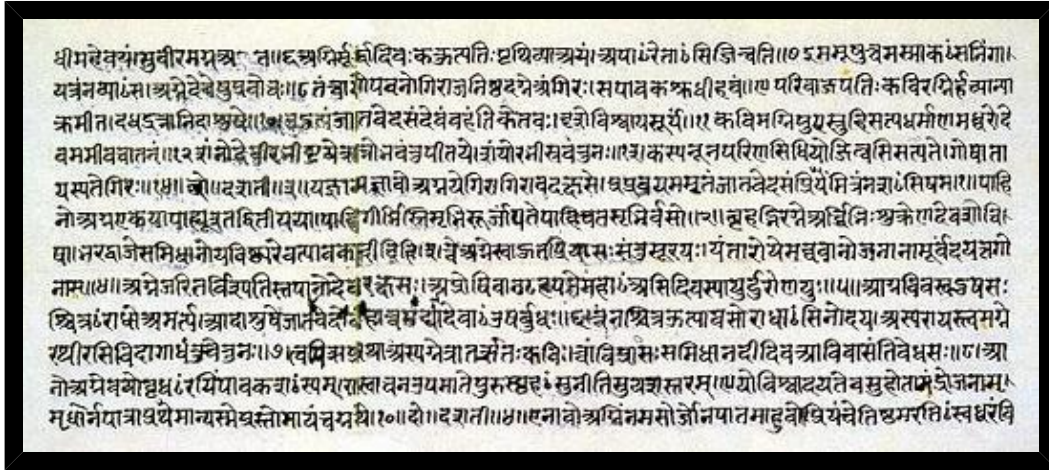 धीमहेवयं।सुवीरमग्नआ त॥६अग्निर्मूर्द्धादिवःककुत्पतिःपृथिव्याअयं।अपाꣳरेताꣳसिजिन्वति॥७इममूषुत्वमस्माकꣳसनिंगा।
यत्रंनव्याꣳसं।अग्नेदेवेषुप्रवोचः॥८तंत्वागोपवनोगिराजनिष्ठदग्नेअंगिरः।सपावकश्रुधीहवं॥९परिवाजपतिःकविरग्निर्हव्यान्या
क्रमीत।दधद्रत्नानिदाशुषे॥१०उदुत्यंजातवेदसंदेवंवहंतिकेतवः।दृशेविश्वायसूर्यं॥११कविमग्निमुपस्तुहिसत्यधर्माणमध्वरेदे
वममीवचातनं॥१२शंनोदेवीरभीष्टयेशंनोभवंतुपीतये।शंयोरभीस्रवंतुनः॥१३कस्यनूनंपरिणसिधियोजिन्वसिसत्पते।गोषाता
यस्यतेगिरः॥१४॥ दशती॥३॥यज्ञायज्ञावोअग्नयेगिरागिराचदक्षसे।प्रप्रवयममृतंजातवेदसंप्रियंमित्रंनशꣳसिषम॥१॥पाहि
नोअग्नएकयापाह्यूतद्वितीयया।पाहिगीर्भिस्तिसृभिरूर्जांपतेपाहिचतसृभिर्वसो॥२॥बृहद्भिरग्नेअर्चिभिःशुक्रेणदेवशोचि
षा।भरद्वाजेसमिधानोयविष्ठ्यरेवत्पावकदीदिहि॥३त्वेअग्नेस्वाहुतप्रियासःसंतुसूरयः।यंतारोयेमघवानोजनानामूर्वंदयंतगो
नाम्॥४॥अग्नेजरितर्विश्पतिस्तपानोदेवरक्षसः।अप्रोषिवान्गृहपतेमहाꣳअसिदिवस्पायुर्दुरोणयुः॥५॥अग्नेविवस्वदुषसः
श्चित्रꣳराधोअमर्त्य।आदाशुषेजातवेदोवहात्वमद्यादेवाꣳउषर्बुधः॥६त्वंनश्चित्रऊत्यावसोराधाꣳसिचोदय।अस्यरायस्त्वमग्ने
रथीरसिविदागाधंतुचेतुनः॥७त्वमित्सप्रथाअस्यग्नेत्रातर्ऋतःकविः।त्वांविप्रासःसमिधानदीदिवआविवासंतिवेधसः॥८।आ
नोअग्नेवयोवृधꣳरयिंपावकशꣳस्यम्।रास्वाचनउपमातेपुरुस्पृहꣳसुनीतिसुयशस्तरम्॥९योविश्वादयतेवसुहोतामंद्रोजनानाम्।
मधोर्नपात्राप्रथमान्यस्मैप्रस्तोमायंत्वग्नये॥१०॥दो॥दशती॥४॥एनावोअग्निंनमसोर्जोनपातमाहुवे।प्रियंचेतिष्ठमरतिꣳस्वध्वरंवि